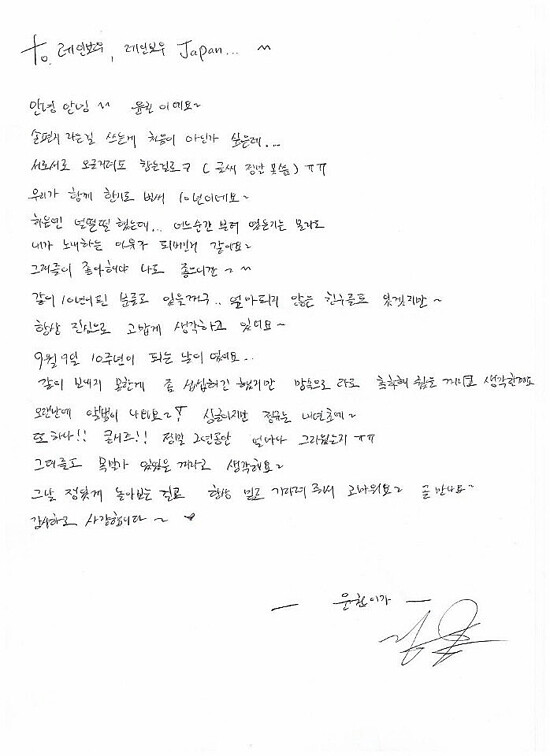 to. 레인보우, 레인보우 Japan... ^^
안녕 안녕 ^^ 윤현 이에요~
손편지 라는걸 쓰는게 처음이 아닌가 싶은데...
서로서로 오글거려도 참는걸로ㅋ ( 글씨 장난 못씀 ) ㅠㅠ
우리가 함께 한지도 벌써 10년이네요~
처음엔 얼떨떨 했는데... 어느순간 부터 였는지는 모겠고
내가 노래하는 이유가 되버린거 같아요~
그대들이 좋아해야 나도 좋으니깐~ ^^
같이 10년이란 분들도 있을꺼구.. 얼마되지 않은 친구들도 있겠지만~
항상 진심으로 고맙게 생각하고 있어요~
9월 9일 10주년이 되는 날이 였어요...
같이 보내지 못한게 좀 섭섭하긴 했지만 맘속으로 다들 축하해 줬을 꺼라고 생각할게요
오랜만에 앨범이 나와요~! 싱글이지만 정규는 내년초에~
또 하나!! 콘서트!! 정말 2년동안 얼마나 그리웠는지 ㅠㅠ
그대들도 목말라 있었을 꺼라고 생각해요~
그날 정말 놀아보는 걸로 항상 믿고 기다려 줘서 고마워요~ 곧 만나요~
감사하고 사랑합니다 ~ ♥
— 윤현이가 —